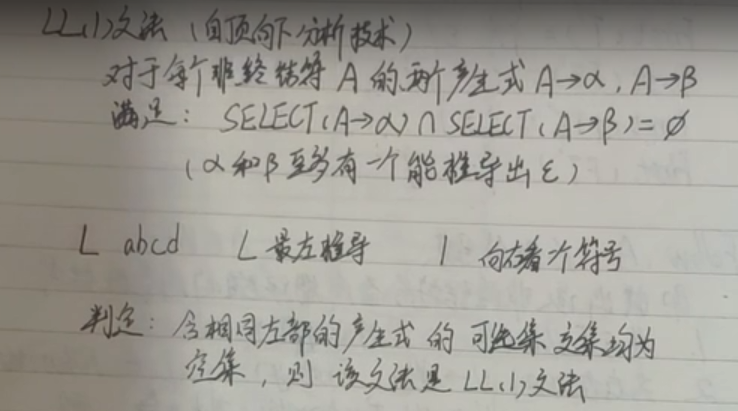 LL(1)文法（自顶向下分析技术）
对于每个非终结符 A 的两个产生式 A→α, A→β
满足： SELECT(A→α) ∩ SELECT(A→β) = ∅
（α和β至多有一个能推导出ε）
L abcd L 最左推导 1 向右看个符号
判定：含相同左部的产生式的可选集交集均为
空集，则该文法是LL(1)文法